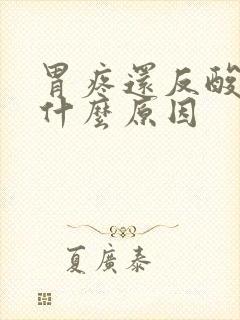 胃疼還反酸
什麼原因
夏廣泰